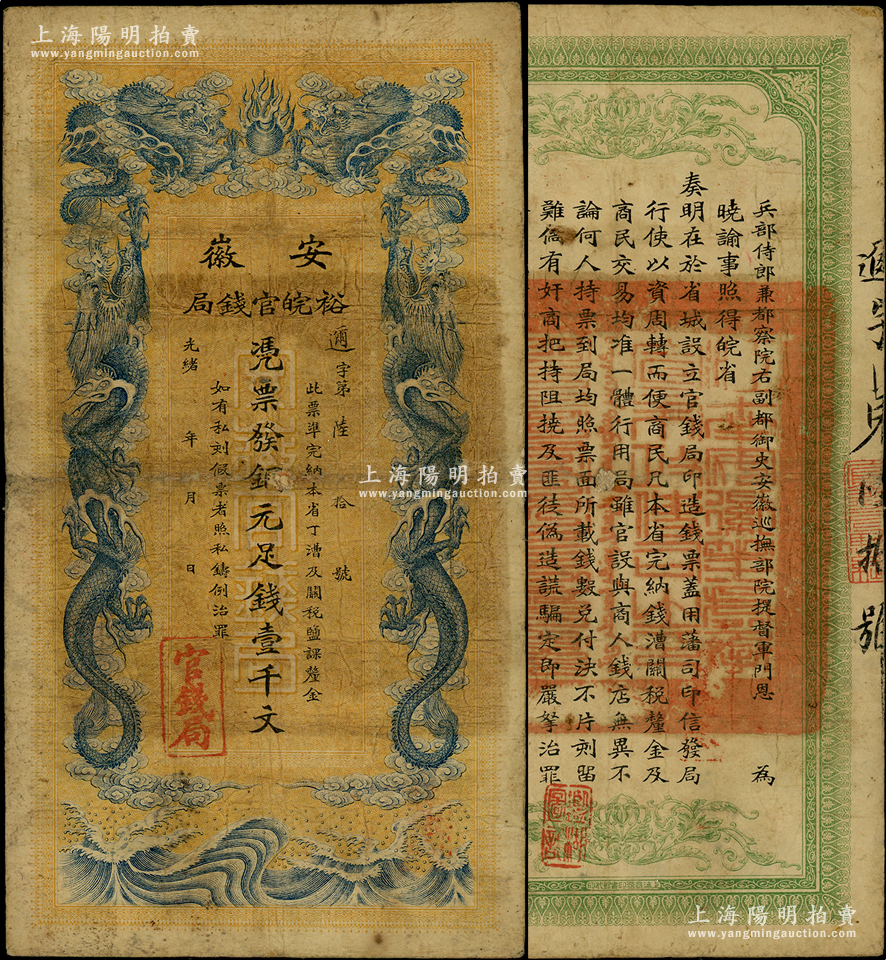 上海陽明拍賣
www.yangmingauction.com
安徽
裕皖官錢局
邇字第陸拾號
此票準完納本省丁漕及關税鹽課釐金
憑票發鉅元足錢壹千文
如有私刻假票者照私鑄例治罪
光緒年月日
官錢局
上海陽明拍賣
www.yangmingauction.com
兵部侍郎兼都察院右副都御史安徽巡撫部院提督軍門恩 為
曉諭事照得皖省
奏明在於省城設立官錢局印造錢票蓋用藩司印信發局
行使以資周轉而便商民凡本省完納錢漕關税釐金及
商民交易均准一體行用局雖官設與商人錢店無異不
論何人持票到局均照票面所載錢數兑付決不片刻留
難倘有奸商把持阻撓及匪徒偽造謊騙定即嚴拏治罪
上海陽明拍賣
www.yangmingauction.com